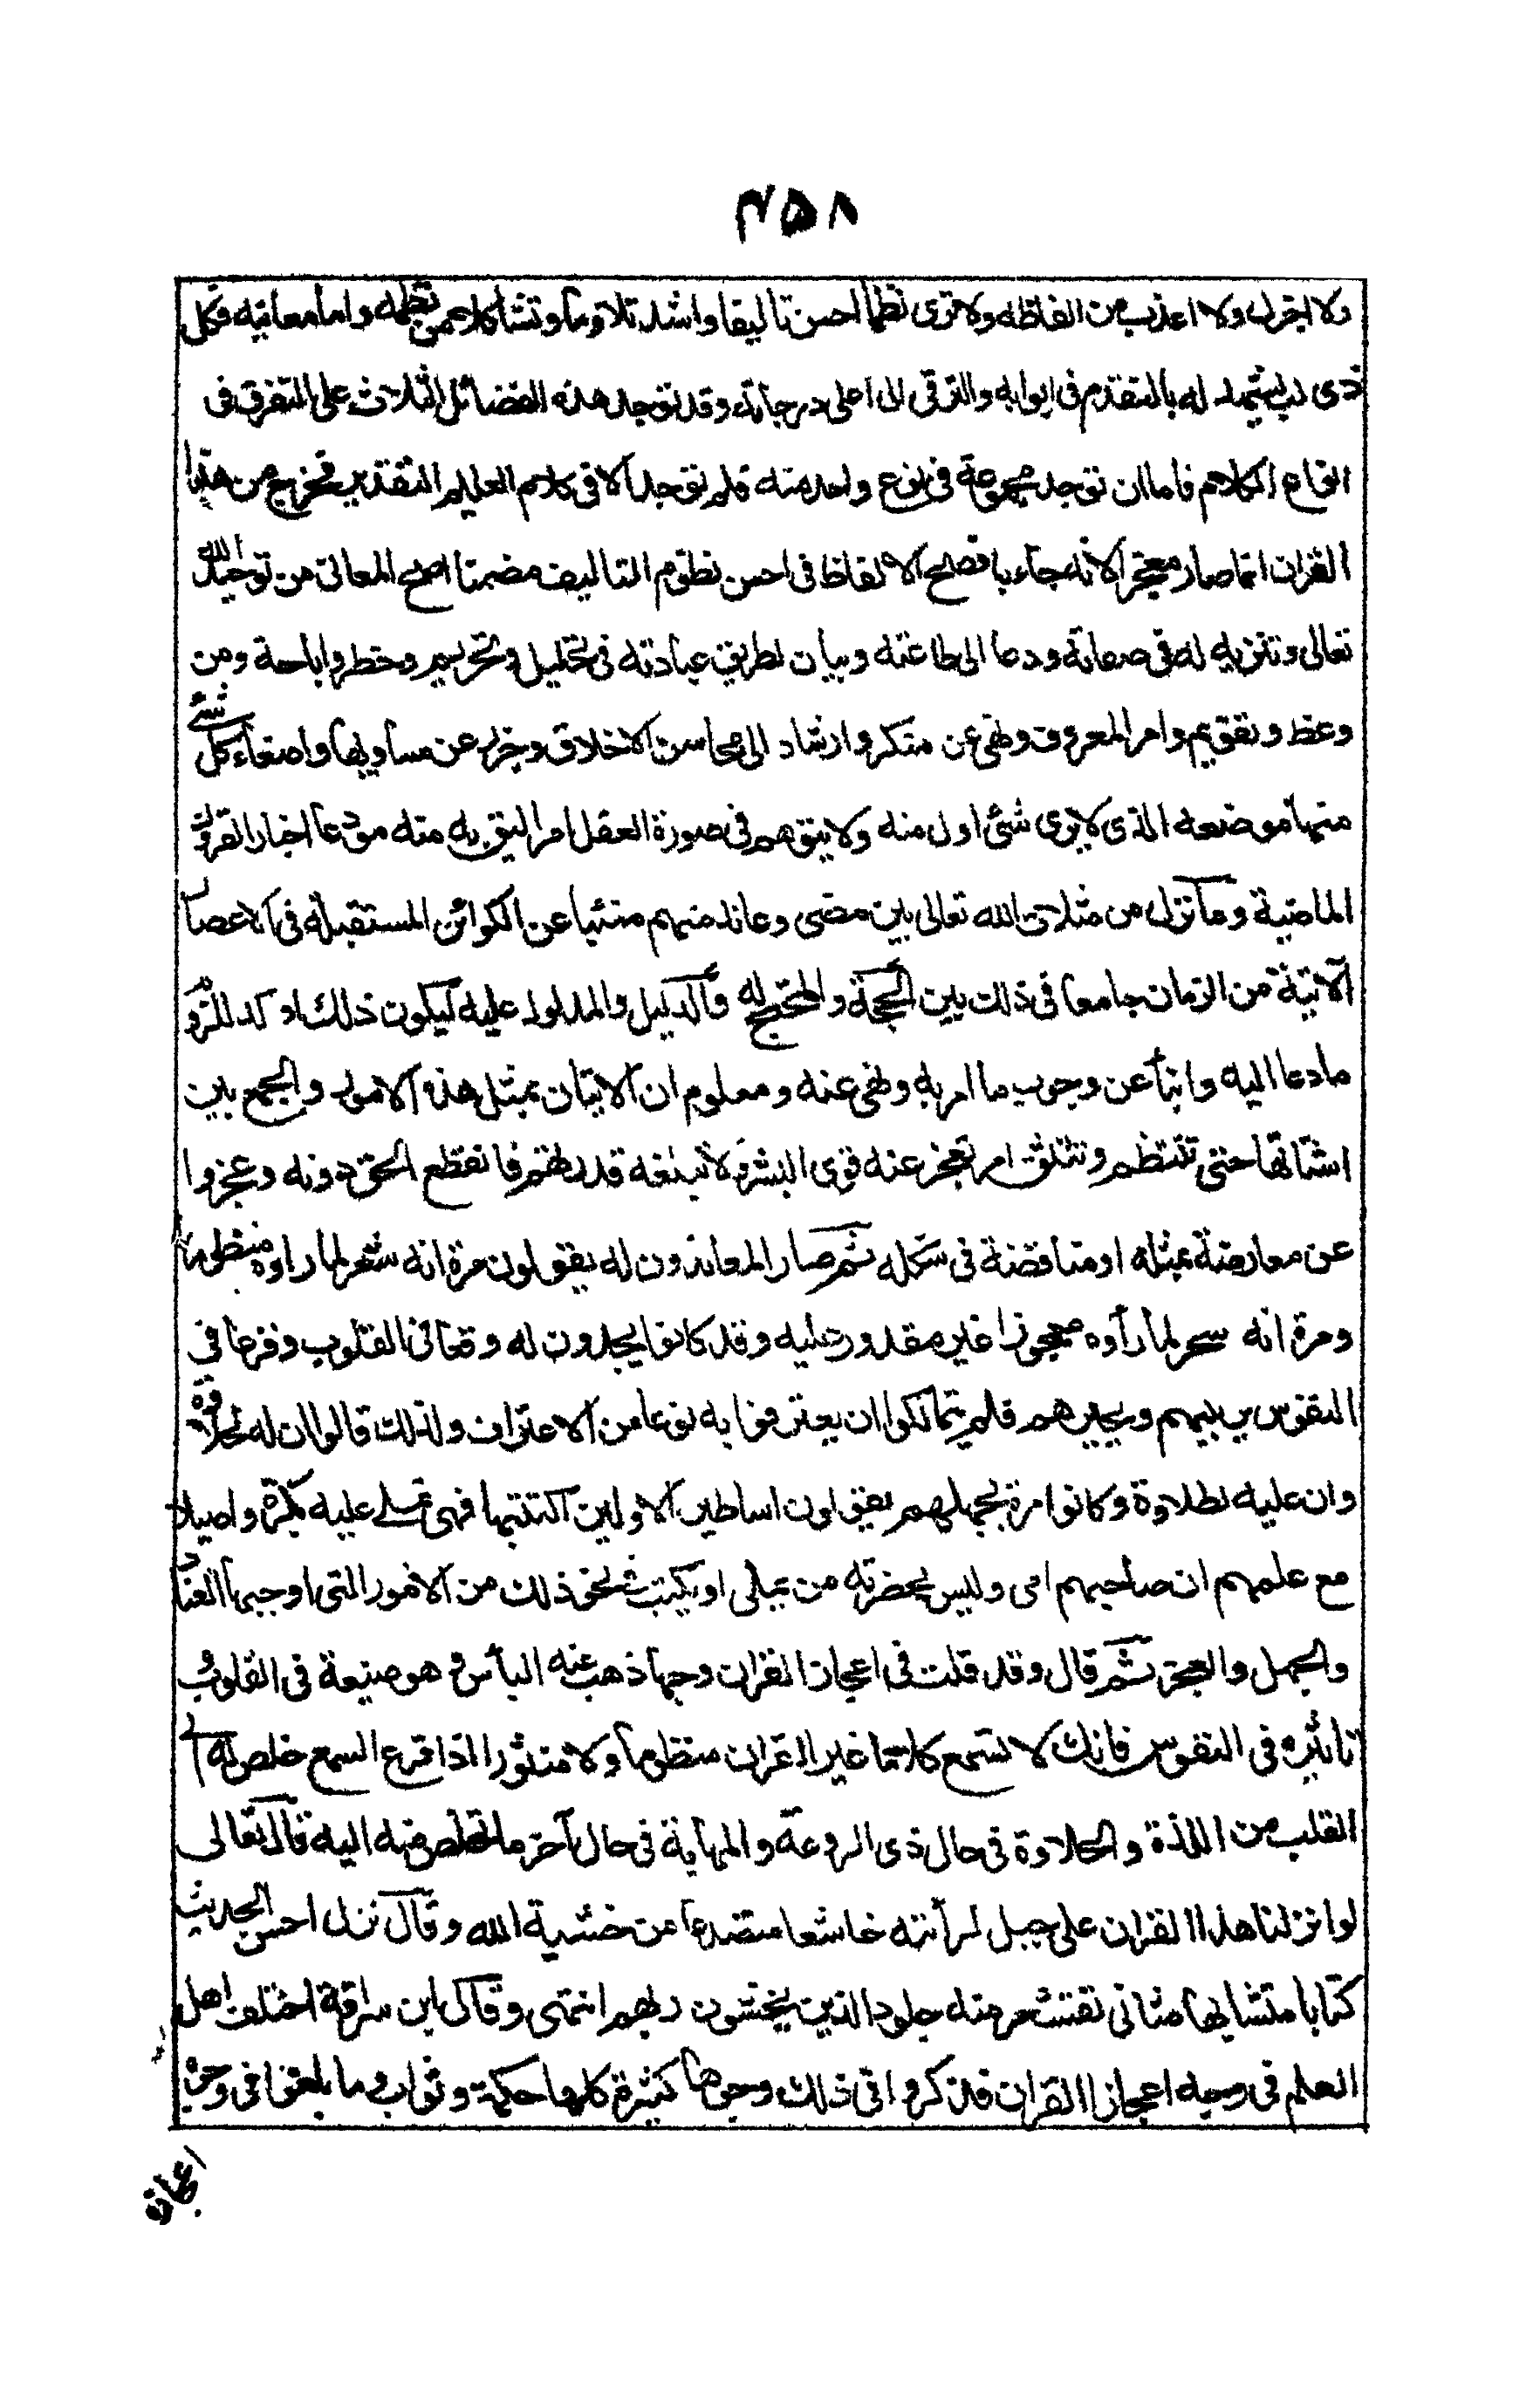 ۴۵۸
ولا اجزل ولا اعذب من الفاظه ولا ترى نظما احسن تاليفا واشد تلاوما وتشاكلا من نظمه واما معانيه فكل
ذى لب يشهد له بالتقدم فى ابوابه والترقى الى اعلى درجاته وقد توجد هذه الفضائل الثلاث على التفرق فى
انواع الكلام فاما ان توجد مجموعة فى نوع واحد منه فلم توجد الا فى كلام العليم القدير فخرج من هذا
القران انما صار معجزا لانه جاء بافصح الالفاظ فى احسن نظوم التاليف مضمنا اصح المعانى من توحيد الله
تعالى وتنزيه له فى صفاته ودعا الى طاعته وبيان لطريق عبادته فى تحليل وتحريم وحظر واباحة ومن
وعظ وتقويم وامر المعروف ونهى عن منكر وارشاد الى محاسن الاخلاق وزجر عن مساويها واضعاء كل شئ
منها موضعه الذى لا يرى شئ اولى منه ولا يتوهم فى صورة العقل امرا اليق به منه مودعا اخبار القرون
الماضية وما نزل من مثلات الله تعالى بمن مضى وعاند منهم منبئا عن الكوائن المستقبلة فى الاعصار
الآتية من الزمان جامعا فى ذلك بين الحجة والمحتج له والدليل والمدلول عليه ليكون ذلك اوكد للزوم
ما دعا اليه وانبأ عن وجوب ما امر به ونهى عنه ومعلوم ان الاتيان بمثل هذه الامور والجمع بين
اشتاتها حتى تنتظم وتتسق امر تعجز عنه قوى البشر ولا تبلغه قدرتهم فانقطع الخلق دونه وعجزوا
عن معارضته بمثله او مناقضته فى شكله ثم صار المعاندون له يقولون مرة انه شعر لما راوه منظوما
ومرة انه سحر لما رأوه معجوزا غير مقدور عليه وقد كانوا يجدون له وقعا فى القلوب وفزعا فى
النفوس يريبهم ويحيرهم فلم يتمالكوا ان يعترفوا به نوعا من الاعتراف ولذلك قالوا ان له لحلاوة
وان عليه لطلاوة وكانوا مرة بجهلهم يقولون اساطير الاولين اكتتبها فهى تملى عليه بكرة واصيلا
مع علمهم ان صاحبهم امى وليس بحضرته من يملى او يكتب فى نحو ذلك من الامور التى اوجبها العناد
والجهل والعجز ثم قال وقد قلت فى اعجاز القران وجها ذهب عنه الناس وهو صنيعه فى القلوب و
تاثيره فى النفوس فانك لا تسمع كلاما غير القران منظوما ولا منثورا اذا قرع السمع خلص له الى
القلب من اللذة والحلاوة فى حال ذى الروعة والمهابة فى حال آخر ما يخلص منه اليه قال تعالى
لو انزلنا هذا القران على جبل لرأيته خاشعا متصدعا من خشية الله وقال نزل احسن الحديث
كتابا متشابها مثانى تقشعر منه جلود الذين يخشون ربهم انتهى وقال ابن سراقة اختلف اهل
العلم فى وجه اعجاز القران فذكروا فى ذلك وجوها كثيرة كلها حكمة وثواب وما بلغوا فى وجوه
اعجازه